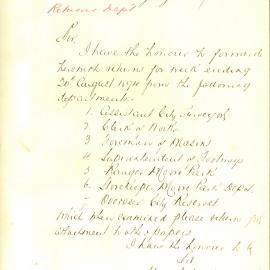 Returns Dept
Sir,
I have the honour to forward
herewith return for week ending
20th August 1890 from the following
departments.
1. Assistant City Surveyor
2. Clerk of Works
3. Foreman of Masons
4. Superintendent of Footways
5. Ranger Moore Park
6. Storekeeper Moore Park Depot
7. Overseer City Reserves
which when examined please return for
attachment to other papers.
I have the honour to be
Sir